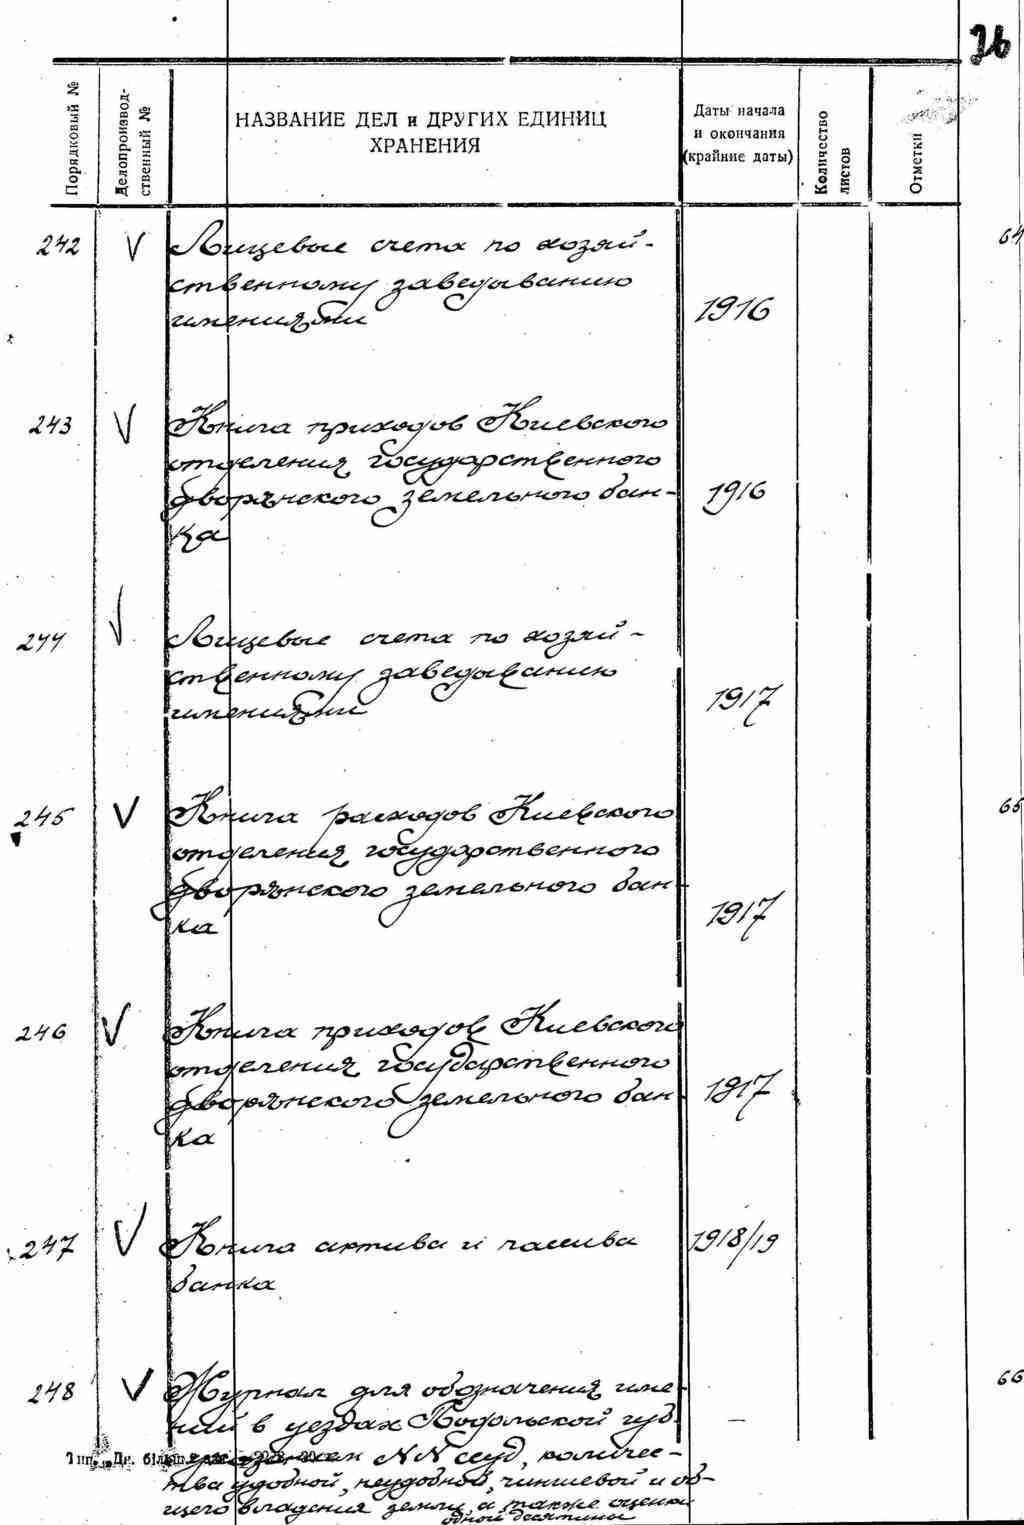 26
Порядковый №
Делопроизвод-
ственный №
НАЗВАНИЕ ДЕЛ и ДРУГИХ ЕДИНИЦ
ХРАНЕНИЯ
Даты начала
и окончания
(крайние даты)
Количество
листов
Отметки
242 V Лицевые счета по хозяй-
ственному заведыванию
имениями 1916
64
243 V Книга приходов Киевского
отделения государственного
дворянского земельного бан-
ка 1916
244 V Лицевые счета по хозяй-
ственному заведыванию
имениями 1917
245 V Книга расходов Киевского
отделения государственного
дворянского земельного бан-
ка 1917
65
246 V Книга приходов Киевского
отделения государственного
дворянского земельного бан-
ка 1917
247 V Книга актива и пассива
банка 1918/19
248 V Журнал для обозначения име-
ний в уездах Подольской губ. —
66
N N ссуд, количес-
тва удобной, неудобной, чиншевой и об-
щего владения земли, а также оценки
одной десятины